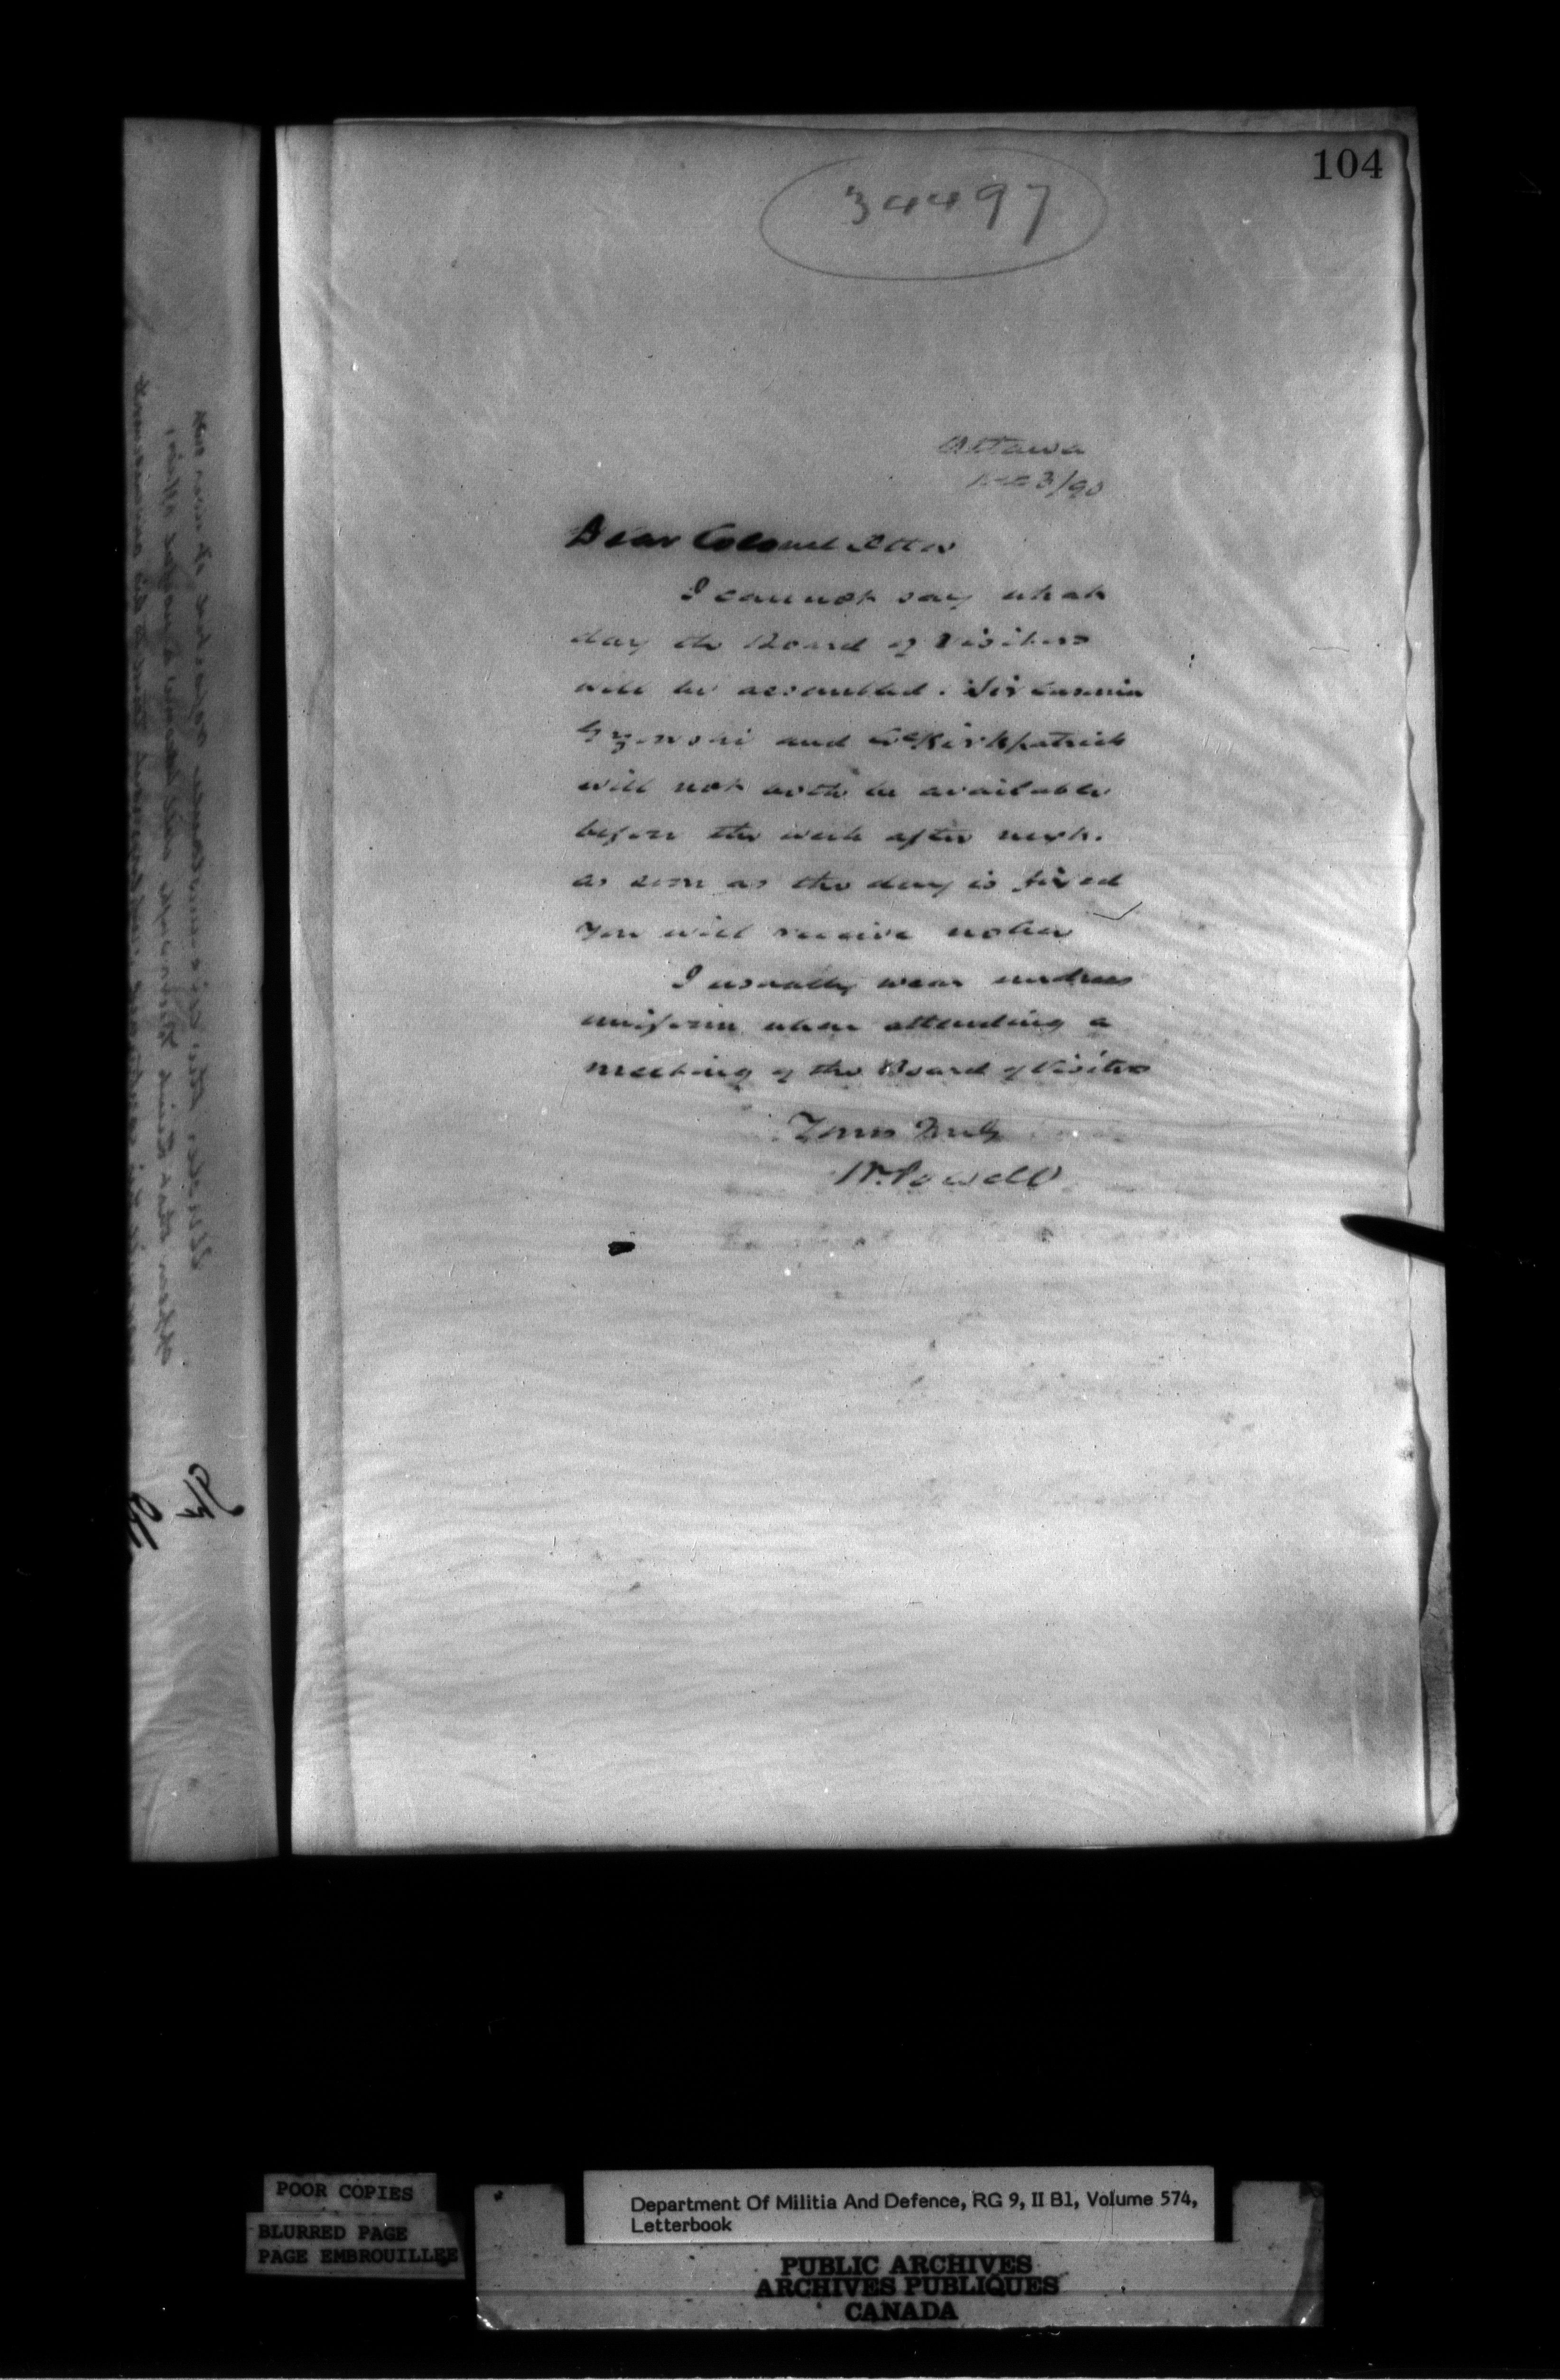 104
34497
Ottawa
Dec 3/90
Dear Colonel Otter
I cannot say what
day the Board of Visitors
will be assembled. Sir Casimir
Gzowski and Lt Kirkpatrick
will not both be available
before the week after next.
as soon as the day is fixed
you will receive notice
I usually wear undress
uniform when attending a
meeting of the Board of Visitors
Yours Truly
W. Powell
POOR COPIES
BLURRED PAGE
PAGE EMBROUILLEE
Department Of Militia And Defence, RG 9, II B1, Volume 574,
Letterbook
PUBLIC ARCHIVES
ARCHIVES PUBLIQUES
CANADA